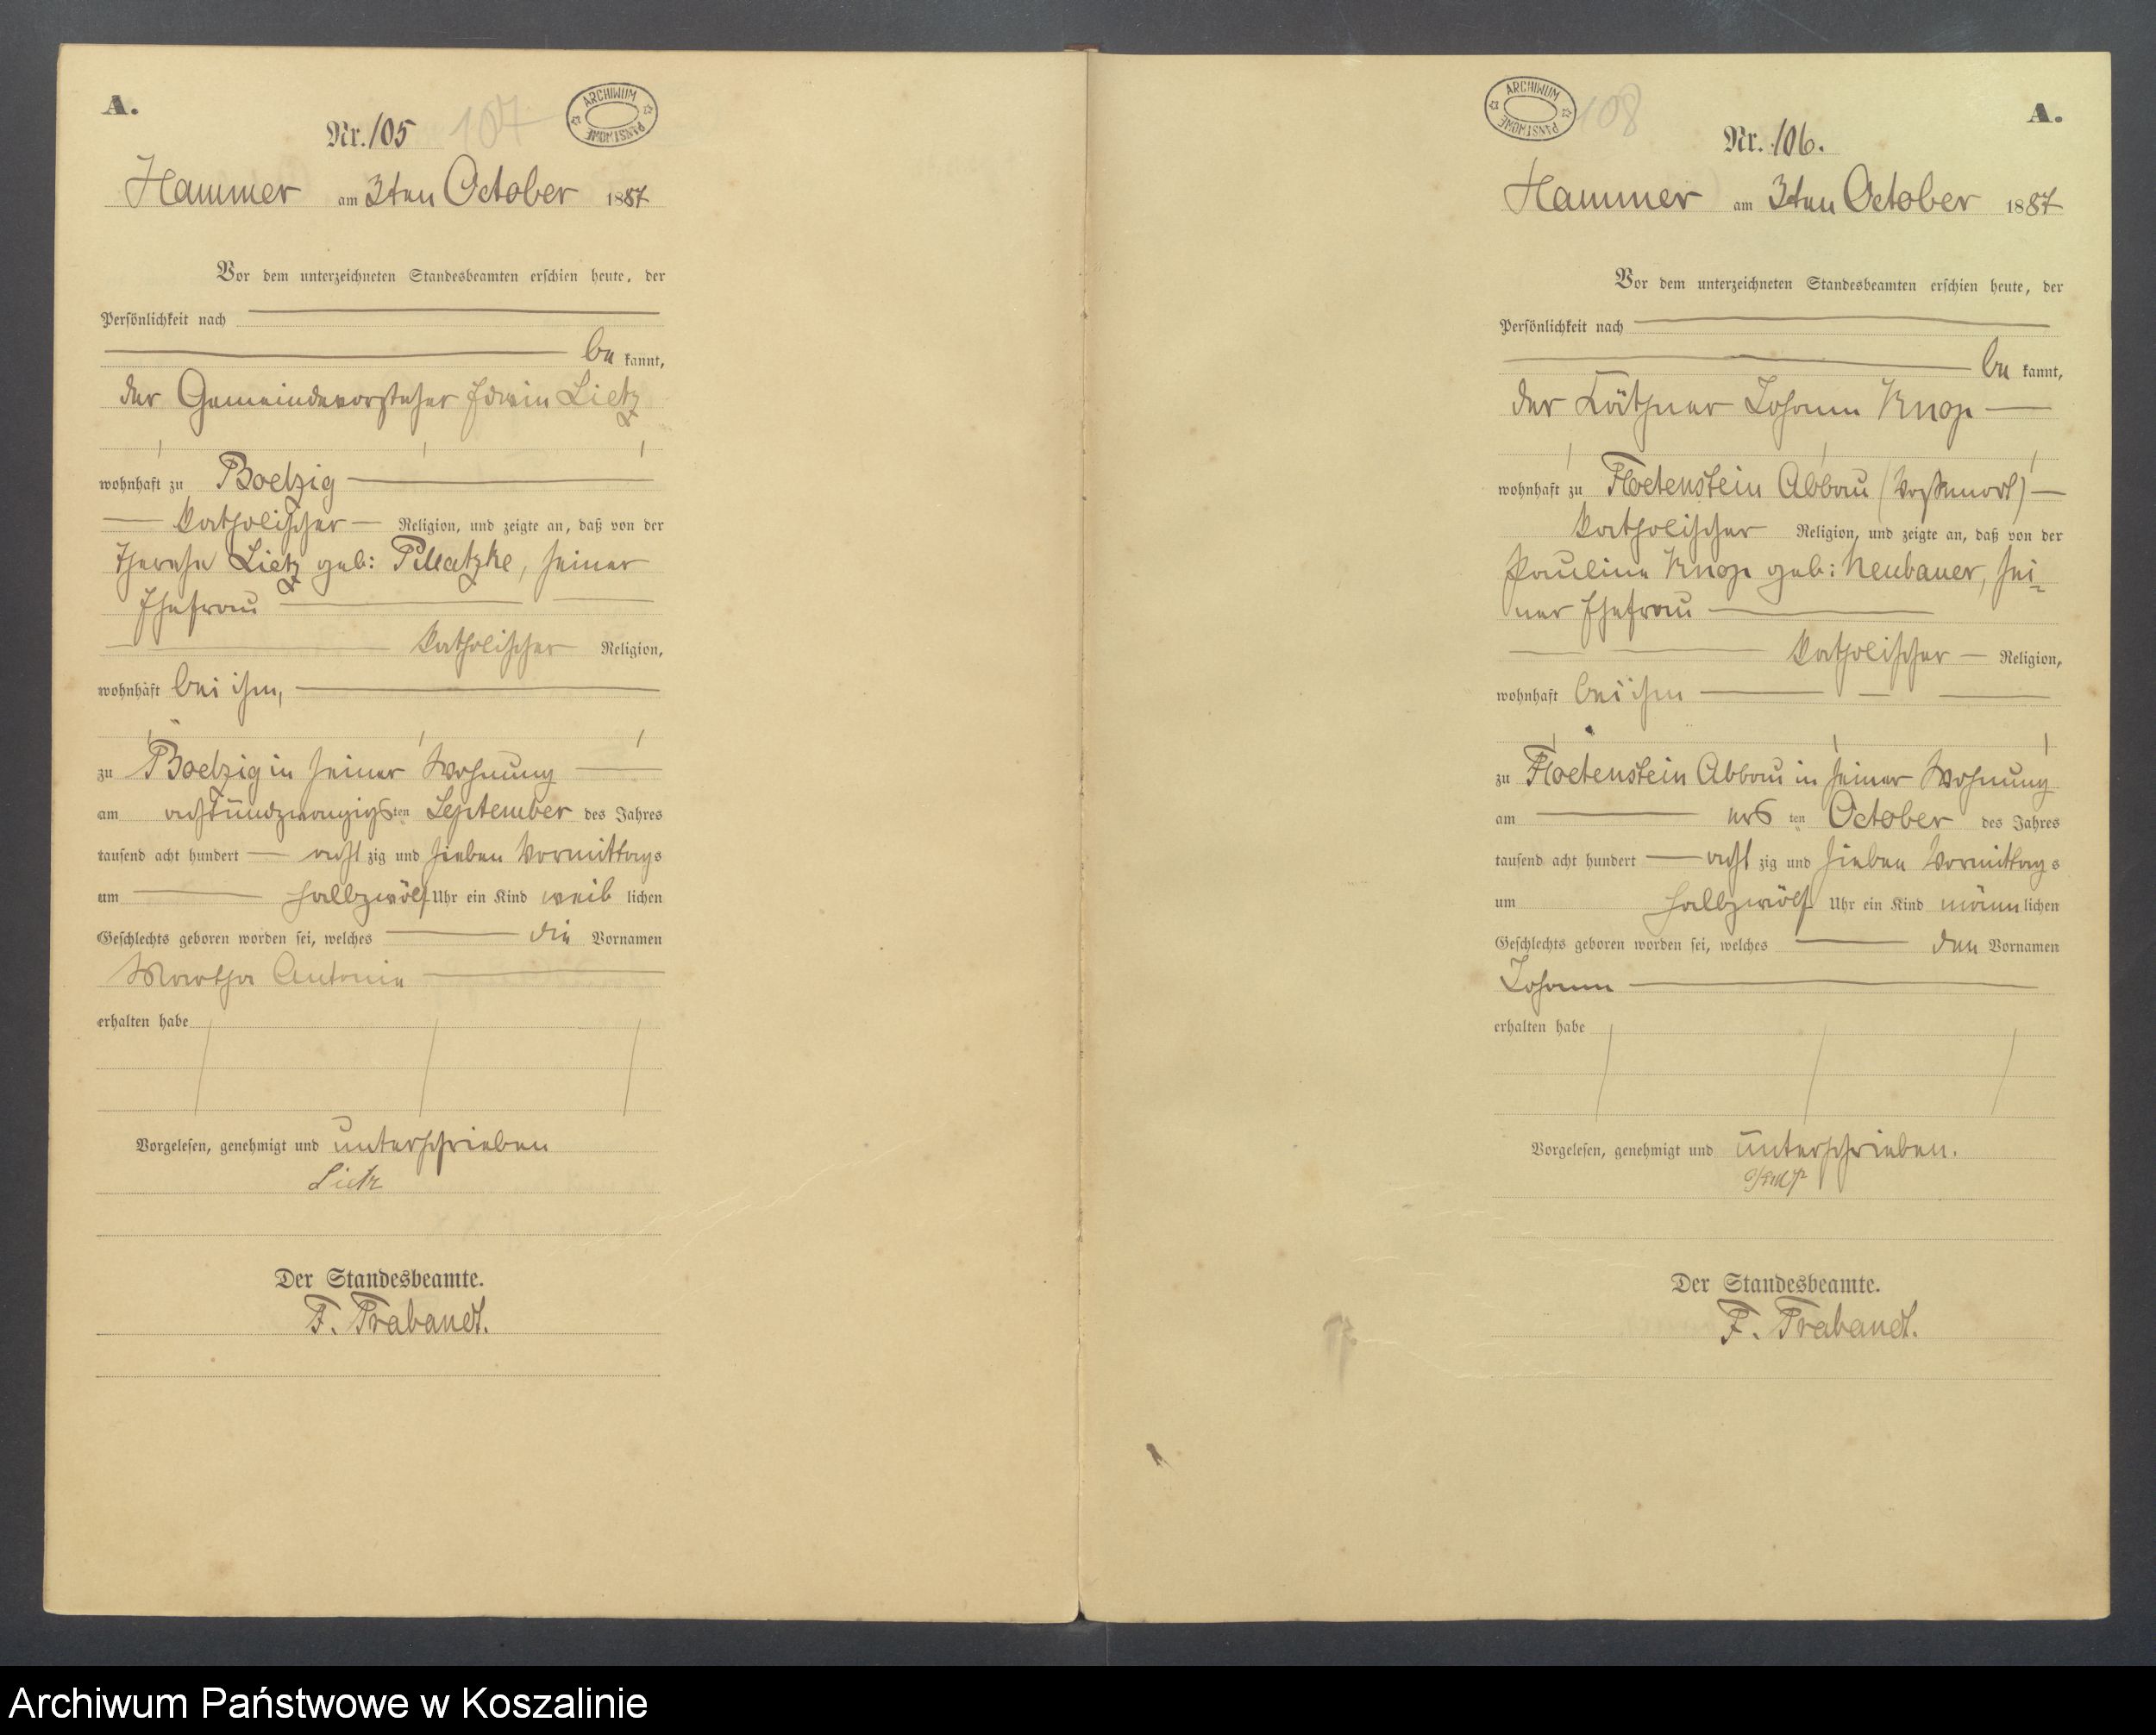 A.
Nr. 105
107
ARCHIWUM PAŃSTWOWE
Hammer am 3ten October 1887
Vor dem unterzeichneten Standesbeamten erschien heute, der
Persönlichkeit nach
be kannt,
der Gemeindevorsteher Edwin Lietz
wohnhaft zu Boelzig
katholischer Religion, und zeigte an, daß von der
Therese Lietz geb: Pillatzke, seiner
Ehefrau
katholischer Religion,
wohnhaft bei ihm,
zu Boelzig in seiner Wohnung
am achtundzwanzigsten September des Jahres
tausend acht hundert acht zig und sieben Vormittags
um halbzwölf Uhr ein Kind weib lichen
Geschlechts geboren worden sei, welches die Vornamen
Martha Antonie
erhalten habe
Vorgelesen, genehmigt und unterschrieben
Lietz
Der Standesbeamte.
F. Trabandt.
ARCHIWUM PAŃSTWOWE
108
A.
Nr. 106.
Hammer am 3ten October 1887
Vor dem unterzeichneten Standesbeamten erschien heute, der
Persönlichkeit nach
be kannt,
der Käthner Johann Knop
wohnhaft zu Floetenstein Abbau
katholischer Religion, und zeigte an, daß von der
Pauline Knop geb: Neubauer, sei-
ner Ehefrau
katholischer Religion,
wohnhaft bei ihm
zu Floetenstein Abbau in seiner Wohnung
am ers ten October des Jahres
tausend acht hundert acht zig und sieben Vormittags
um halbzwölf Uhr ein Kind männlichen
Geschlechts geboren worden sei, welches den Vornamen
Johann
erhalten habe
Vorgelesen, genehmigt und unterschrieben.
Der Standesbeamte.
F. Trabandt.
Archiwum Państwowe w Koszalinie